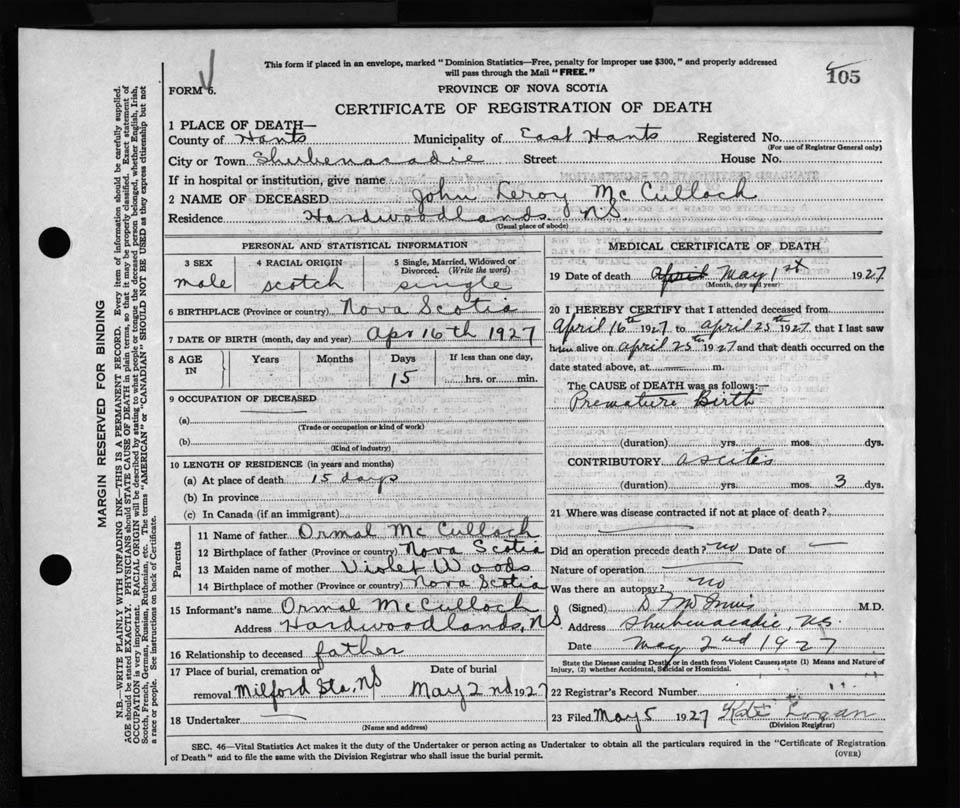 This form if placed in an envelope, marked "Dominion Statistics—Free, penalty for improper use $300," and properly addressed
will pass through the Mail "FREE."
105
FORM 6.
PROVINCE OF NOVA SCOTIA
CERTIFICATE OF REGISTRATION OF DEATH
1 PLACE OF DEATH—
County of Hants Municipality of East Hants Registered No.
(For use of Registrar General only)
City or Town Shubenacadie Street House No.
If in hospital or institution, give name
2 NAME OF DECEASED John Leroy McCulloch
Residence Hardwoodlands NS.
(Usual place of abode)
PERSONAL AND STATISTICAL INFORMATION
3 SEX 4 RACIAL ORIGIN 5 Single, Married, Widowed or
Divorced. (Write the word)
male scotch single
6 BIRTHPLACE (Province or country) Nova Scotia
7 DATE OF BIRTH (month, day and year) Apr 16th 1927
8 AGE IN Years Months Days If less than one day,
15 hrs. or min.
9 OCCUPATION OF DECEASED
(a)
(Trade or occupation or kind of work)
(b)
(Kind of industry)
10 LENGTH OF RESIDENCE (in years and months)
(a) At place of death 15 days
(b) In province
(c) In Canada (if an immigrant)
Parents
11 Name of father Ormal McCulloch
12 Birthplace of father (Province or country) Nova Scotia
13 Maiden name of mother Violet Woods
14 Birthplace of mother (Province or country) Nova Scotia
15 Informant's name Ormal McCulloch
Address Hardwoodlands, NS
16 Relationship to deceased father
17 Place of burial, cremation or Date of burial
removal Milford Sta, NS May 2nd 1927
18 Undertaker
(Name and address)
MEDICAL CERTIFICATE OF DEATH
19 Date of death April May 1st 1927
(Month, day and year)
20 I HEREBY CERTIFY that I attended deceased from
April 16th 1927 to April 25th 1927 that I last saw
him alive on April 25th 1927 and that death occurred on the
date stated above, at m.
The CAUSE of DEATH was as follows:—
Premature Birth
(duration) yrs. mos. dys.
CONTRIBUTORY ascites
(duration) yrs. mos. 3 dys.
21 Where was disease contracted if not at place of death?
Did an operation precede death? no Date of —
Nature of operation
Was there an autopsy? no
(Signed) M.D.
Address Shubenacadie, N.S.
Date May 2nd 1927
State the Disease causing Death, or in death from Violent Causes, state (1) Means and Nature of
Injury, (2) whether Accidental, Suicidal or Homicidal.
22 Registrar's Record Number
23 Filed May 5 1927 Kate Logan
(Division Registrar)
SEC. 46—Vital Statistics Act makes it the duty of the Undertaker or person acting as Undertaker to obtain all the particulars required in the "Certificate of Registration
of Death" and to file the same with the Division Registrar who shall issue the burial permit.
(OVER)
MARGIN RESERVED FOR BINDING
N.B.—WRITE PLAINLY WITH UNFADING INK—THIS IS A PERMANENT RECORD. Every item of information should be carefully supplied.
AGE should be stated EXACTLY. PHYSICIANS should STATE CAUSE OF DEATH in plain terms, so that it may be properly classified. Exact statement of
OCCUPATION is very important. RACIAL ORIGIN will be described by stating to what people or tongue the deceased person belonged, whether English, Irish,
Scotch, French, German, Russian, Ruthenian, etc. The terms "AMERICAN" or "CANADIAN" SHOULD NOT BE USED as they express citizenship but not
a race or people. See instructions on back of Certificate.